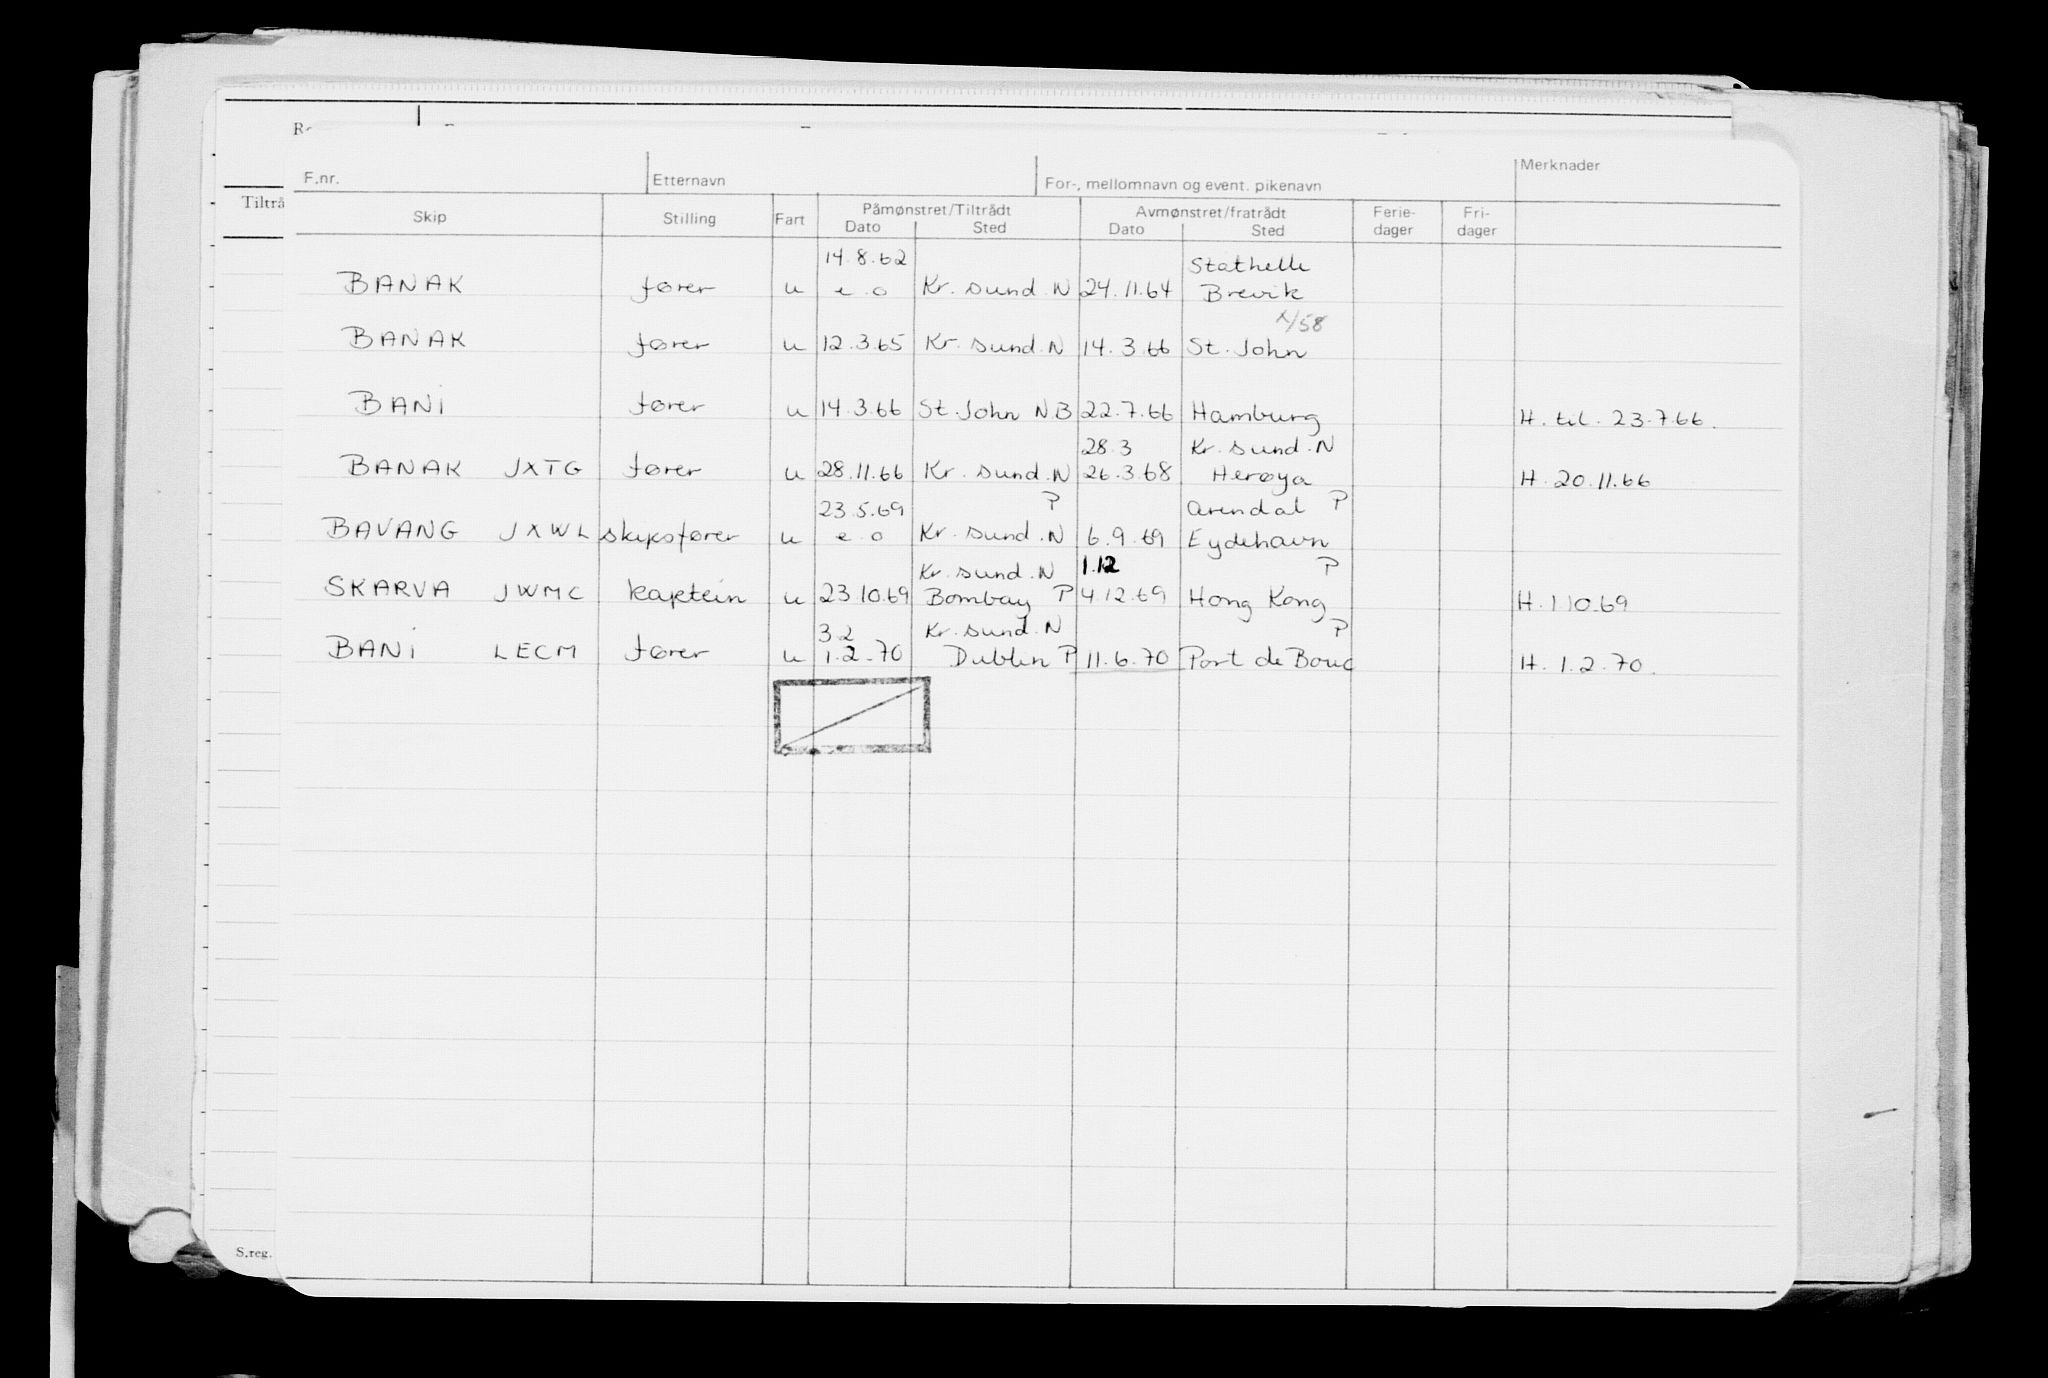 F.nr. Etternavn For-, mellomnavn og event. pikenavn Merknader
Tiltrå
Skip Stilling Fart Påmønstret/Tiltrådt Avmønstret/fratrådt Ferie- Fri-
Dato Sted Dato Sted dager dager
14.8.62 Stathelle
BANAK fører u e.o Kr.sund.N 24.11.64 Brevik
1/58
BANAK fører u 12.3.65 Kr.sund.N 14.3.66 St.John
BANI fører u 14.3.66 St.John N.B 22.7.66 Hamburg H. til. 23.7.66.
28.3 Kr.sund.N
BANAK JXTG fører u 28.11.66 Kr.sund.N 26.3.68 Herøya H. 20.11.66
23.5.69 P Arendal P
BAVANG JXWL skipsfører u e.o Kr.sund.N 6.9.69 Eydehavn
Kr.sund.N 1.12 P
SKARVA JWMC kaptein u 23.10.69 Bombay P 4.12.69 Hong Kong H. 1.10.69
3.2 Kr.sund.N P
BANI LECM fører u 1.2.70 Dublin P 11.6.70 Port de Bouc H. 1.2.70.
S.reg.